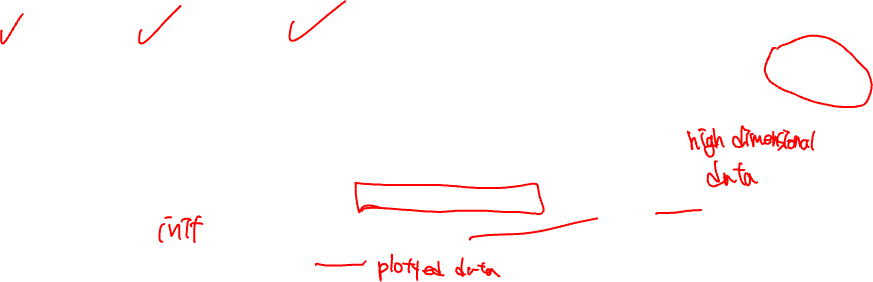 high dimensional
data
init
plotted data